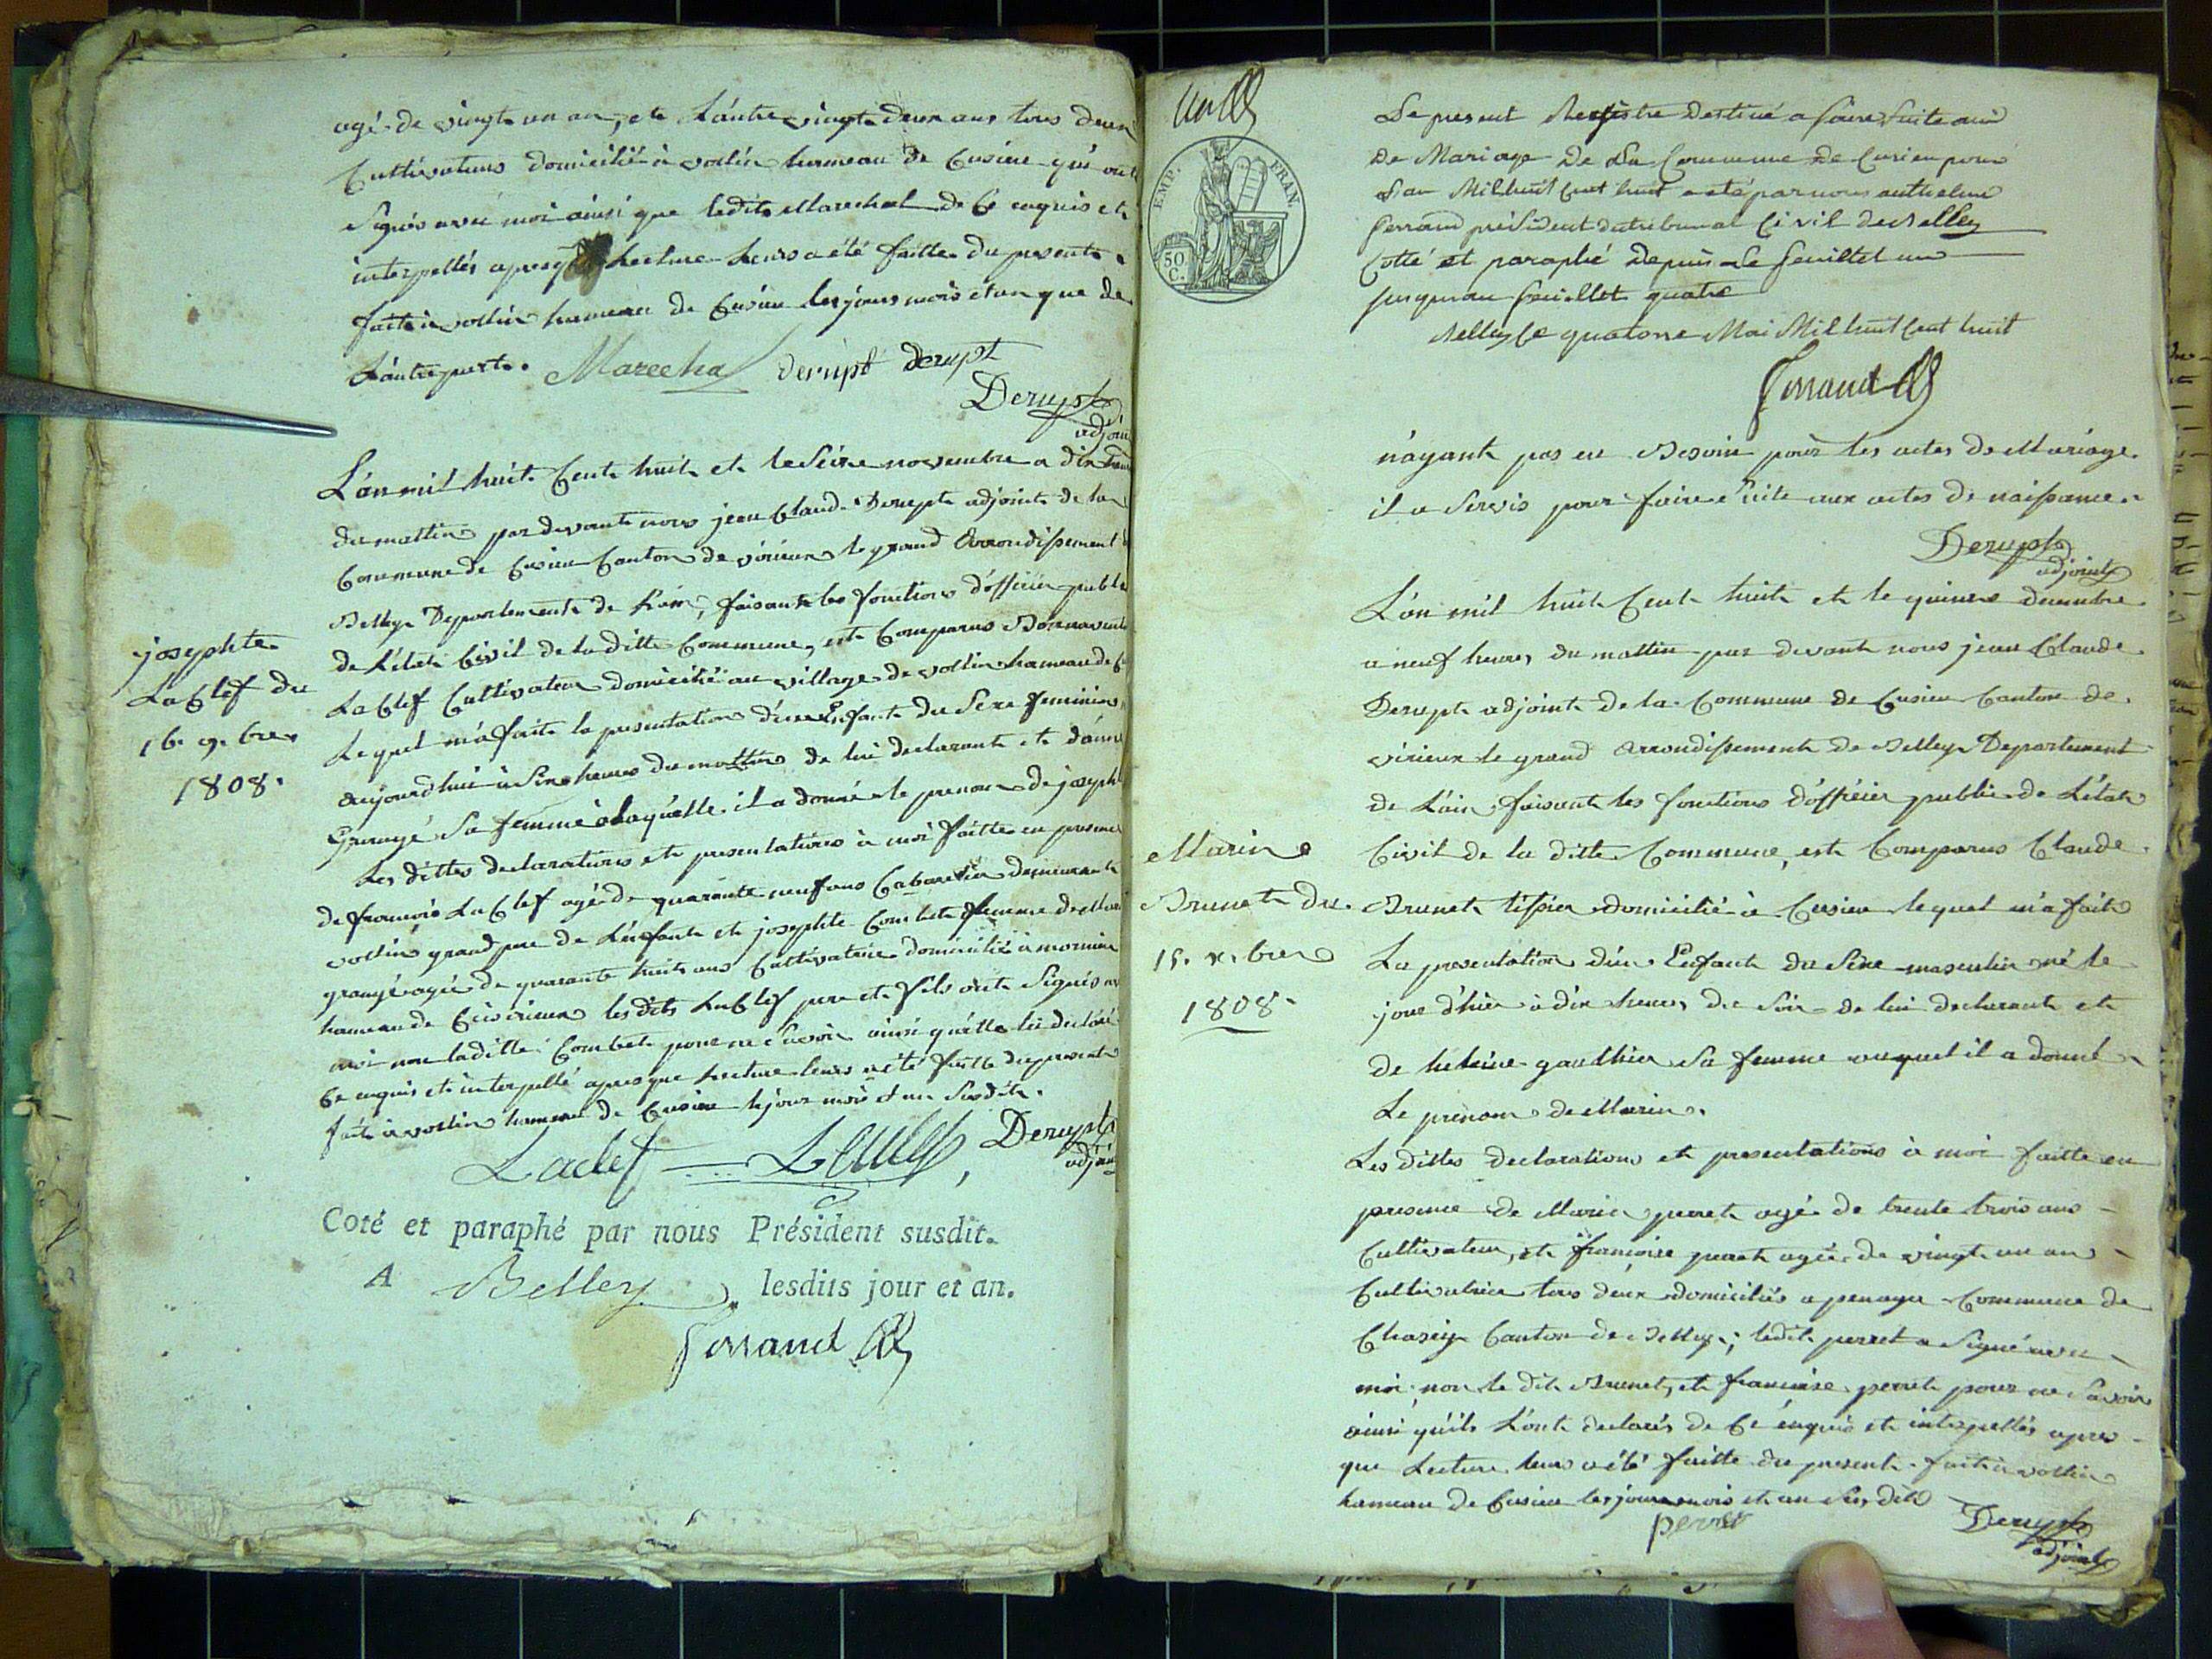 agé de vingt un an, et L'autre vingt deux ans tous deux
Cultivateurs domicilié à vollin hameau de Cusieu qui ont
signés avec moi ainsi que ledit Marechal de Ce enquis et
interpellés apres que Lecture leurs a été faitte du present.
fait à vollin hameau de Cusieu les jours mois et an que de
L'autre part. Marechal Derupt derupt
Derupt
adjoint
L'an mil huit Cent huit et le seize novembre a dix heures
du mattin par devant nous jean Claude Derupt adjoint de la
Commune de Cusieu Canton de virieux le grand Arrondissement
Belley Departement de L'ain, faisant les fonctions d'officier public
de L'état Civil de la ditte Commune, est Comparus
La Clef Cultivateur domicilié au village de vollin hameau de
Lequel m'a fait la presentation d'un Enfant du Sexe feminin,
aujourdhui à Six heures du mattin de lui declarant et
sa femme à laquelle il a donné le prenom de joseph
Les dittes declarations et presentations à moi faitte en presence
de francois La Clef agé de quarante neuf ans Cabaretier demeurant
vollin grand pere de L'enfant et josephte Combet femme de
grangé agée de quarante huit ans Cultivatrice domicilié à
hameau de les dits LaClef pere et fils ont Signés
moi non laditte Combet pour ne Savoir ainsi qu'elle
Ce enquis et interpellé apres que Lecture leurs a été faitte du present
fait à vollin hameau de Cusieu le jour mois et an Susdit.
Laclef Laclef, Derupt
adjoint
josephte
LaClef du
16. 9. bre
1808.
Coté et paraphé par nous Président susdit.
A Belley, lesdits jour et an.
Ferrand
EMP. FRAN.
50 C.
Le present Registre Destiné a faire Suite aux
De Mariage De La Commune De Cusieu pour
L'an Mil huit Cent huit a été par nous anthelme
ferrand président du tribunal Civil de Belley
Cotté et paraphé Depuis Le feuillet un
jusqu'au feuillet quatre
Belley le quatorze Mai Mil huit Cent huit
Ferrand
n'ayant pas eu Besoin pour les actes de Mariage.
il a Servis pour faire Suite aux actes de naissance.
Derupt
adjoint
L'an mil huit Cent huit et le quinze decembre
a neuf heures du mattin par devant nous jean Claude
Derupt adjoint de la Commune de Cusieu Canton de
virieux le grand Arrondissement de Belley Departement
de L'ain faisant les fonctions d'officier public de L'état
Civil de la ditte Commune, est Comparus Claude
Brunet tissier domicilié à Cusieu lequel m'a fait
La presentation d'un Enfant du Sexe masculin né le
jour d'hier à dix heures du Soir de lui declarant et
de heleine gauthier Sa femme auquel il a donné
Le prenom de Marin.
Les dittes declarations et presentations à moi faitte en
presence de Marin perret agé de trente trois ans
Cultivateur, et francoise perret agée de vingt un ans
Cultivatrice tous deux domiciliés a penaye Commune de
Chasey Canton de Belley; ledit perret a Signé avec
moi non le dit Brunet, et francoise perret pour ne Savoir
ainsi qu'ils L'ont declarés de Ce enquis et interpellés apres
que Lecture leurs a été faitte du present. fait à vollin
hameau de Cusieu les jours mois et an Sus dits
perret Derupt
adjoint
Marin
Brunet du
15. x. bre
1808.